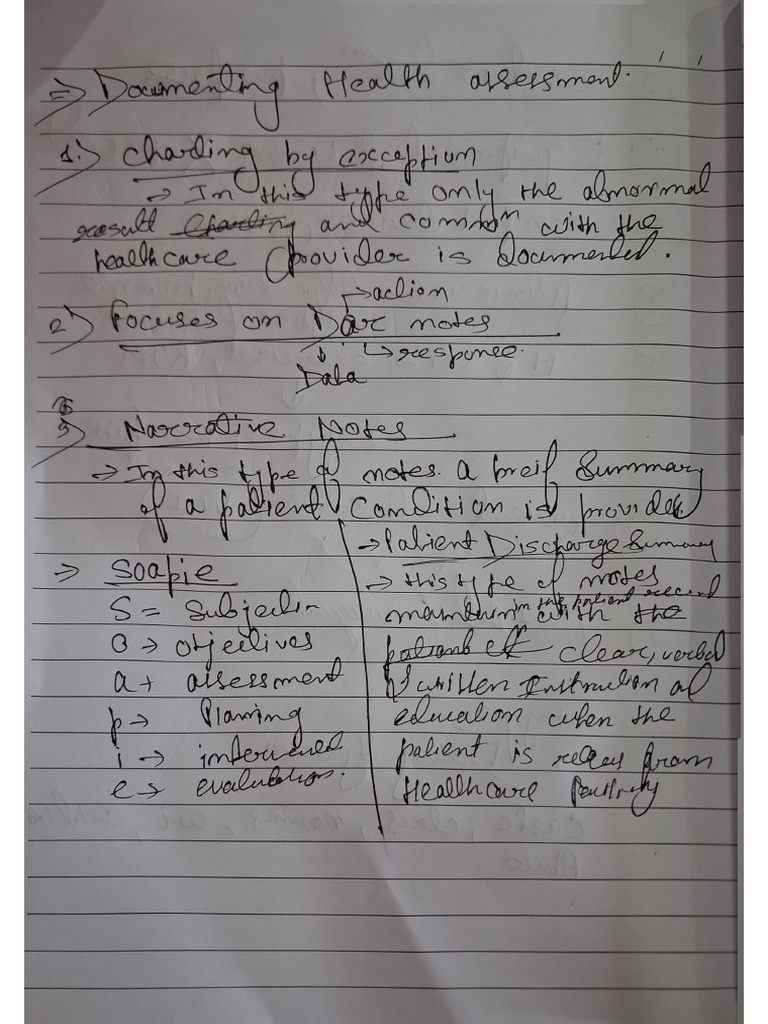 ⇒ Documenting Health assessment.
1.) Charling by exception
→ In this type only the abnormal
result Charling and common with the
healthcare provider is documented.
→action
2) Focuses on Dar notes
↳response.
↓
Data
3) Narrative Notes
→ In this type of notes a breif Summary
of a patient Condition is provided.
⇒ SOapie
S = Subjectin
O → otjectives
a → assessment
p → Planing
i → intervened
e → evaluation.
→ Patient Discharge Summary
→ this type of notes
in the patient record
with the
patient clear, verbal
written Instruction
education when the
patient is from
Healthcare